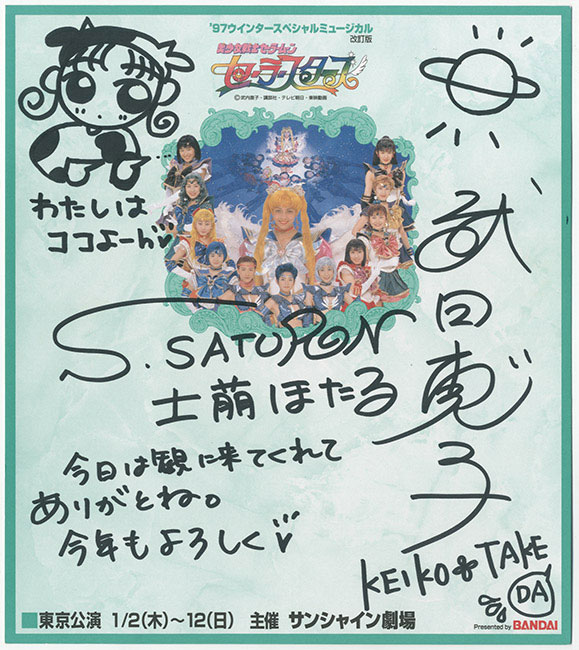 '97ウインタースペシャルミュージカル
改訂版
美少女戦士セーラームーン
セーラースターズ
©武内直子・講談社・テレビ朝日・東映動画
わたしは
ココよーん♥
武田恵子
S.SATURN
土萠ほたる
今日は観に来てくれて
ありがとね。
今年もよろしく♥
KEIKO TAKE
DA
Presented by BANDAI
■東京公演 1/2(木)〜12(日) 主催 サンシャイン劇場